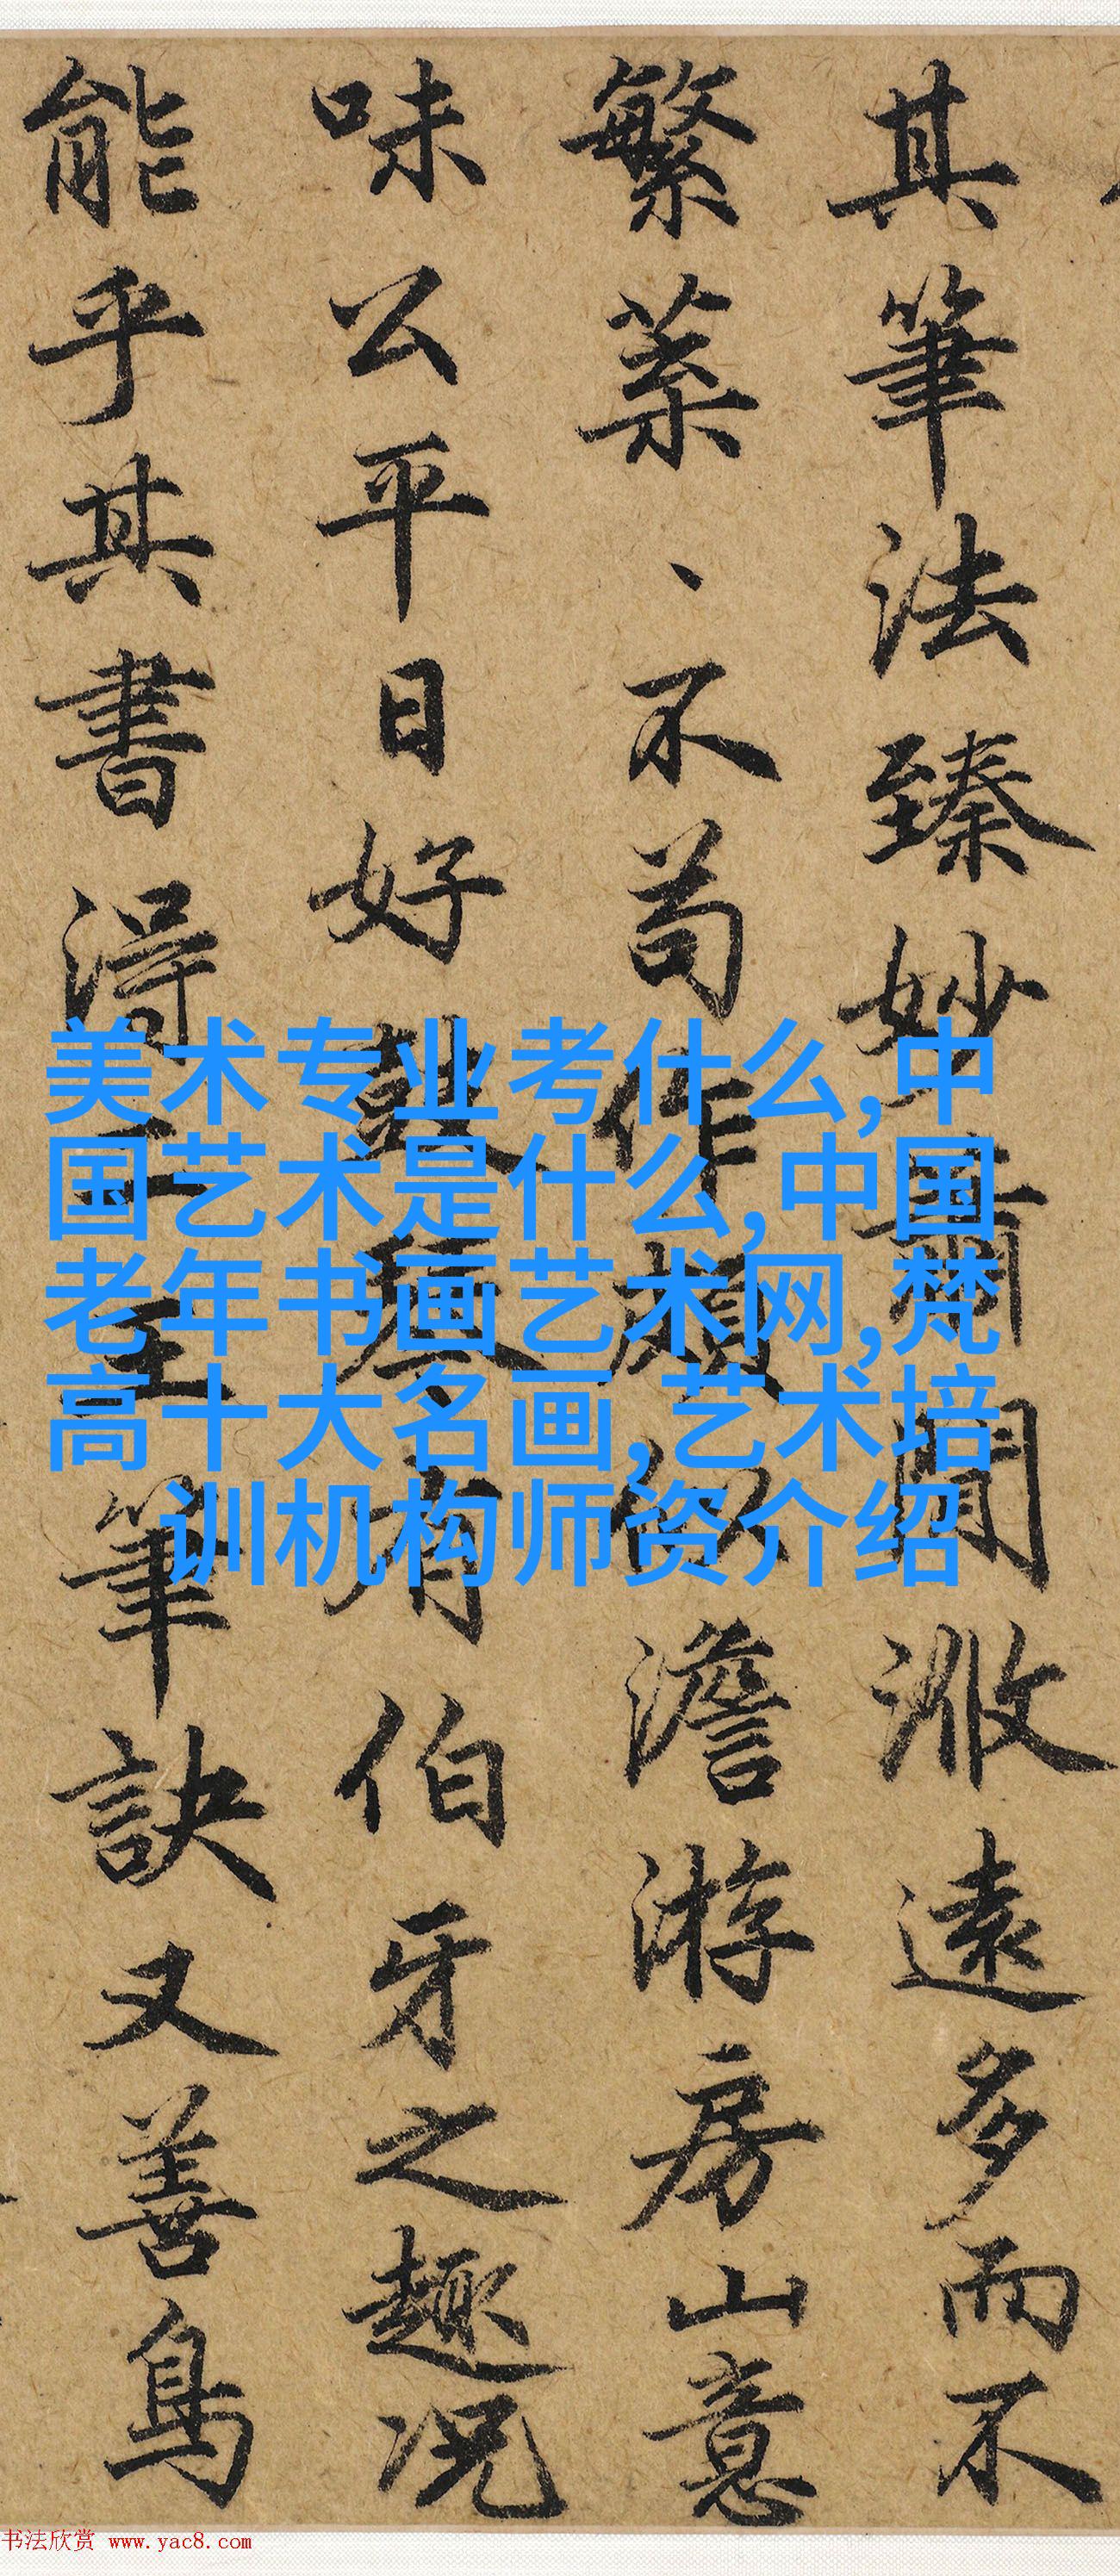 其筆法臻妙▢▢閒澂遠多而不
繁菉、不苟作頗似澹游房山意
味公平日好鼓琴有伯牙之趣况
能乎其書得二王筆訣又善鳥
美术专业考什么,中
国艺术是什么,中国
老年书画艺术网,梵
高十大名画,艺术培
训机构师资介绍
书法欣赏 www.yac8.com